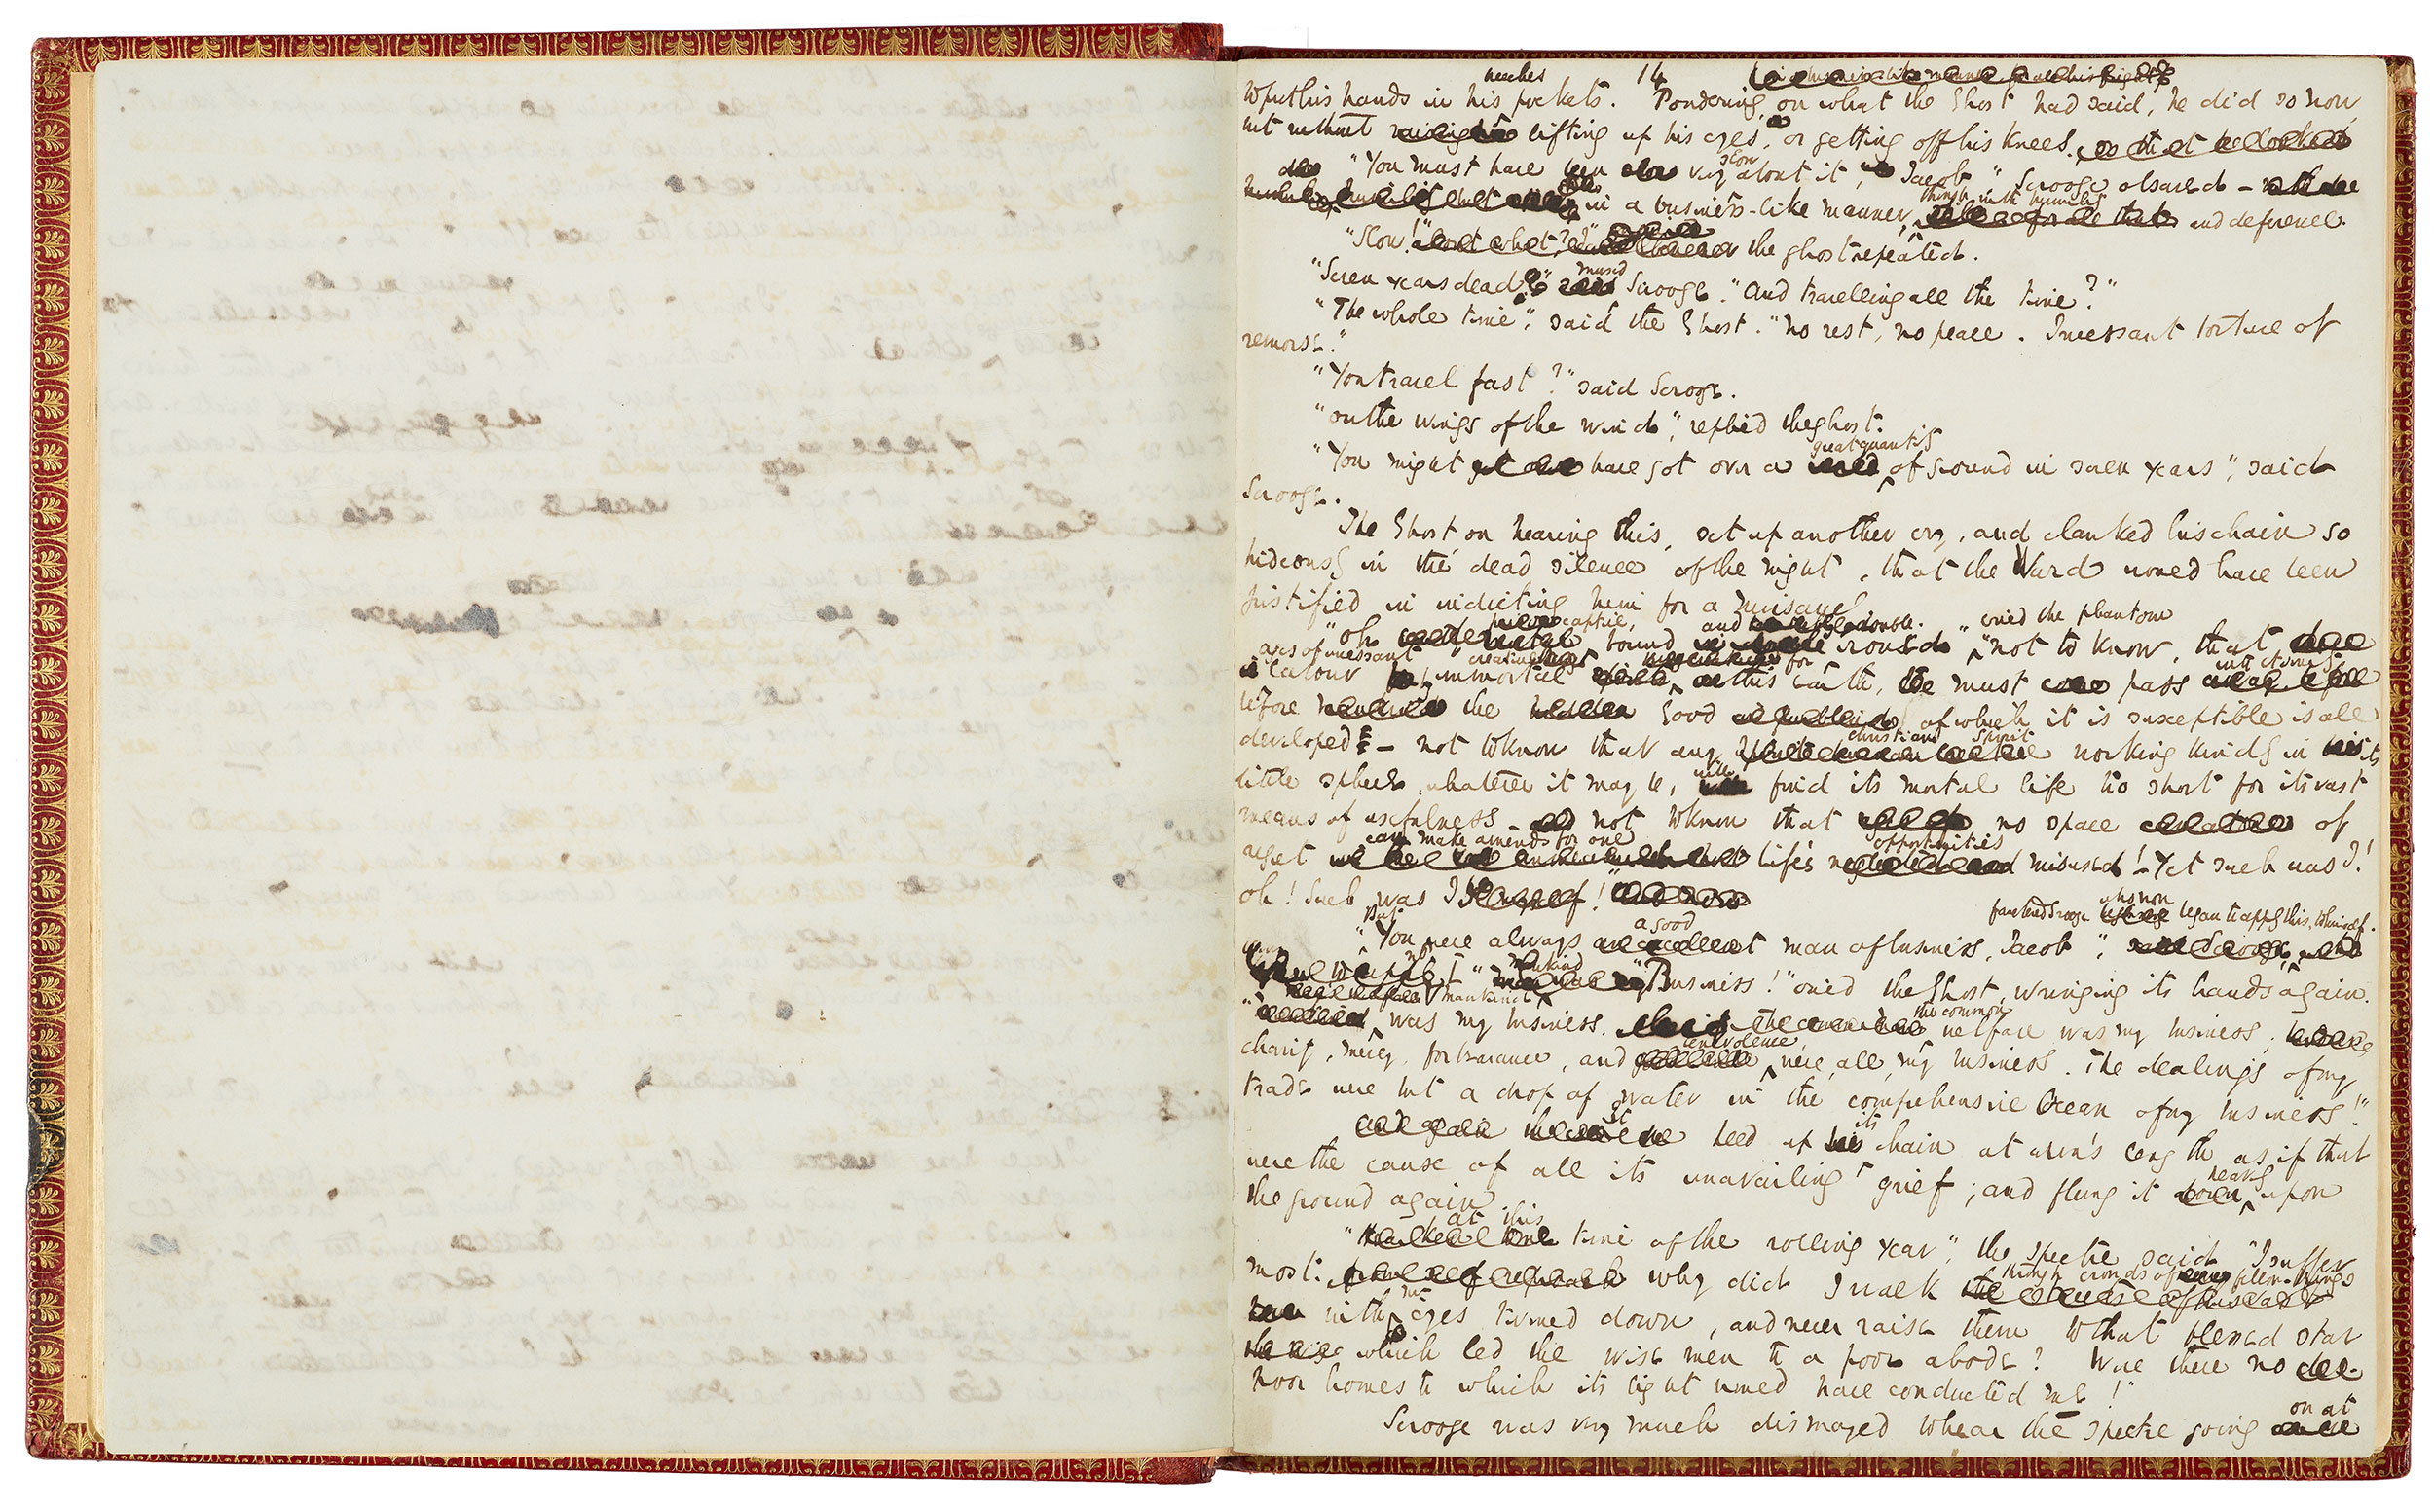 14
to put his hands in his pockets. Pondering on what the Ghost had said, he did so now,
but without lifting up his eyes, or getting off his knees.
"You must have been very slow about it, Jacob," Scrooge observed –
in a business-like manner, though with humility and deference.
"Slow!" the ghost repeated.
"Seven years dead" mused Scrooge. "And travelling all the time?"
"The whole time," said the Ghost. "No rest, no peace. Incessant torture of
remorse."
"You travel fast?" said Scrooge.
"On the wings of the wind," replied the ghost.
"You might have got over a great quantity of ground in seven years," said
Scrooge.
The Ghost on hearing this, set up another cry, and clanked his chain so
hideously in the dead silence of the night, that the Ward would have been
justified in indicting him for a nuisance.
"Oh captive, bound and double ironed," cried the phantom "not to know, that
ages of incessant labour by immortal creatures for this earth, must pass into eternity
before the good of which it is susceptible is all
developed – not to know that any Christian Spirit working kindly in its
little sphere, whatever it may be, will find its mortal life too short for its vast
means of usefulness – not to know that no space of
regret can make amends for one life's opportunities misused! – Yet such was I!
oh! Such was I!"
"But You were always a good man of business, Jacob," faultered Scrooge who now began to apply this to himself.
"Business!" cried the Ghost, wringing its hands again.
"Mankind was my business. the common welfare was my business;
charity, mercy, forbearance, and benevolence, were, all, my business. The dealings of my
trade were but a drop of water in the comprehensive Ocean of my business!"
It held up its chain at arm's length as if that
were the cause of all its unavailing grief; and flung it heavily upon
the ground again.
"at this time of the rolling year," the spectre said "I suffer
most. why did I walk through crowds of fellow-beings
with my eyes turned down, and never raise them to that blessed star
which led the wise men to a poor abode? Were there no
poor homes to which its light would have conducted me!"
Scrooge was very much dismayed to hear the spectre going on at